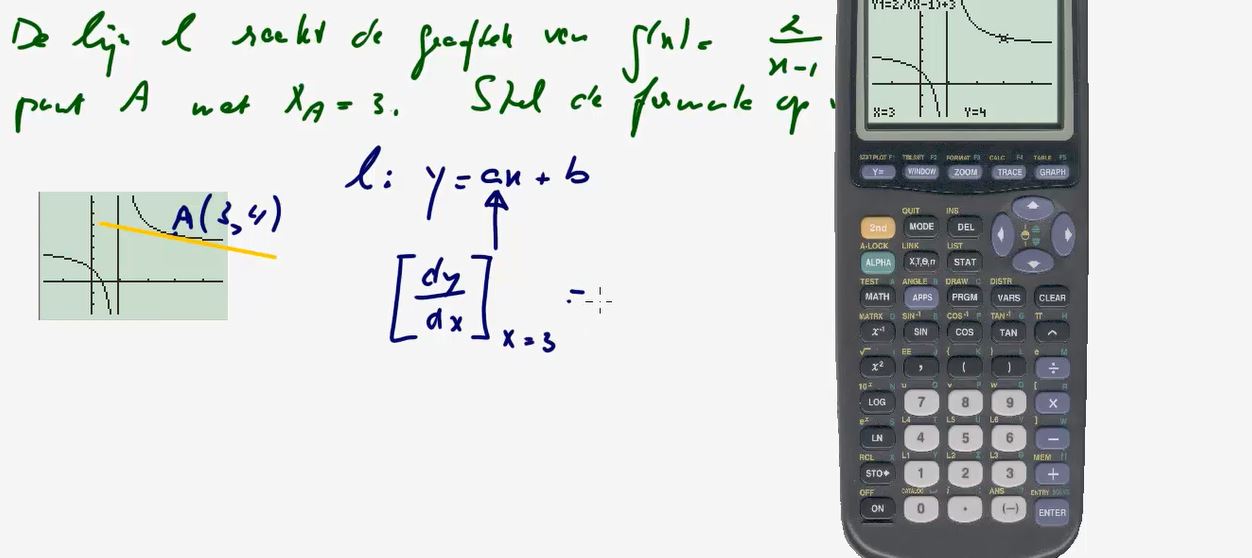 De lijn l raakt de grafiek van f(x) = 2/x-1
punt A met xA = 3. Stel de formule op v
l: y = ax + b
A(3,4)
[dy/dx]x=3 =
Y1=2/(X-1)+3
X=3 Y=4
STAT PLOT F1 TBLSET F2 FORMAT F3 CALC F4 TABLE F5
Y= WINDOW ZOOM TRACE GRAPH
QUIT INS
2nd MODE DEL
A-LOCK LINK LIST
ALPHA X,T,θ,n STAT
TEST A ANGLE B DRAW C DISTR
MATH APPS PRGM VARS CLEAR
MATRX D SIN-1 E COS-1 F TAN-1 G π H
x-1 SIN COS TAN ^
√ I EE J { K } L e M
x² , ( ) ÷
10x N u O v P w Q [ R
LOG 7 8 9 ×
ex S L4 T L5 U L6 V ] W
LN 4 5 6 −
RCL X L1 Y L2 Z L3 θ MEM "
STO▸ 1 2 3 +
OFF CATALOG i ANS ENTRY SOLVE
ON 0 . (−) ENTER